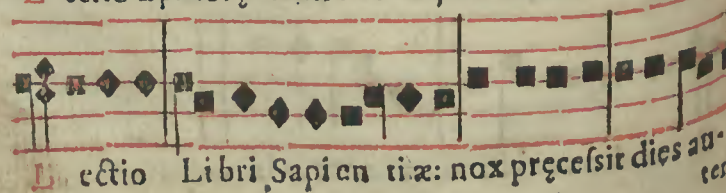 Lectio Libri Sapientiæ: nox pręcefsit dięs au